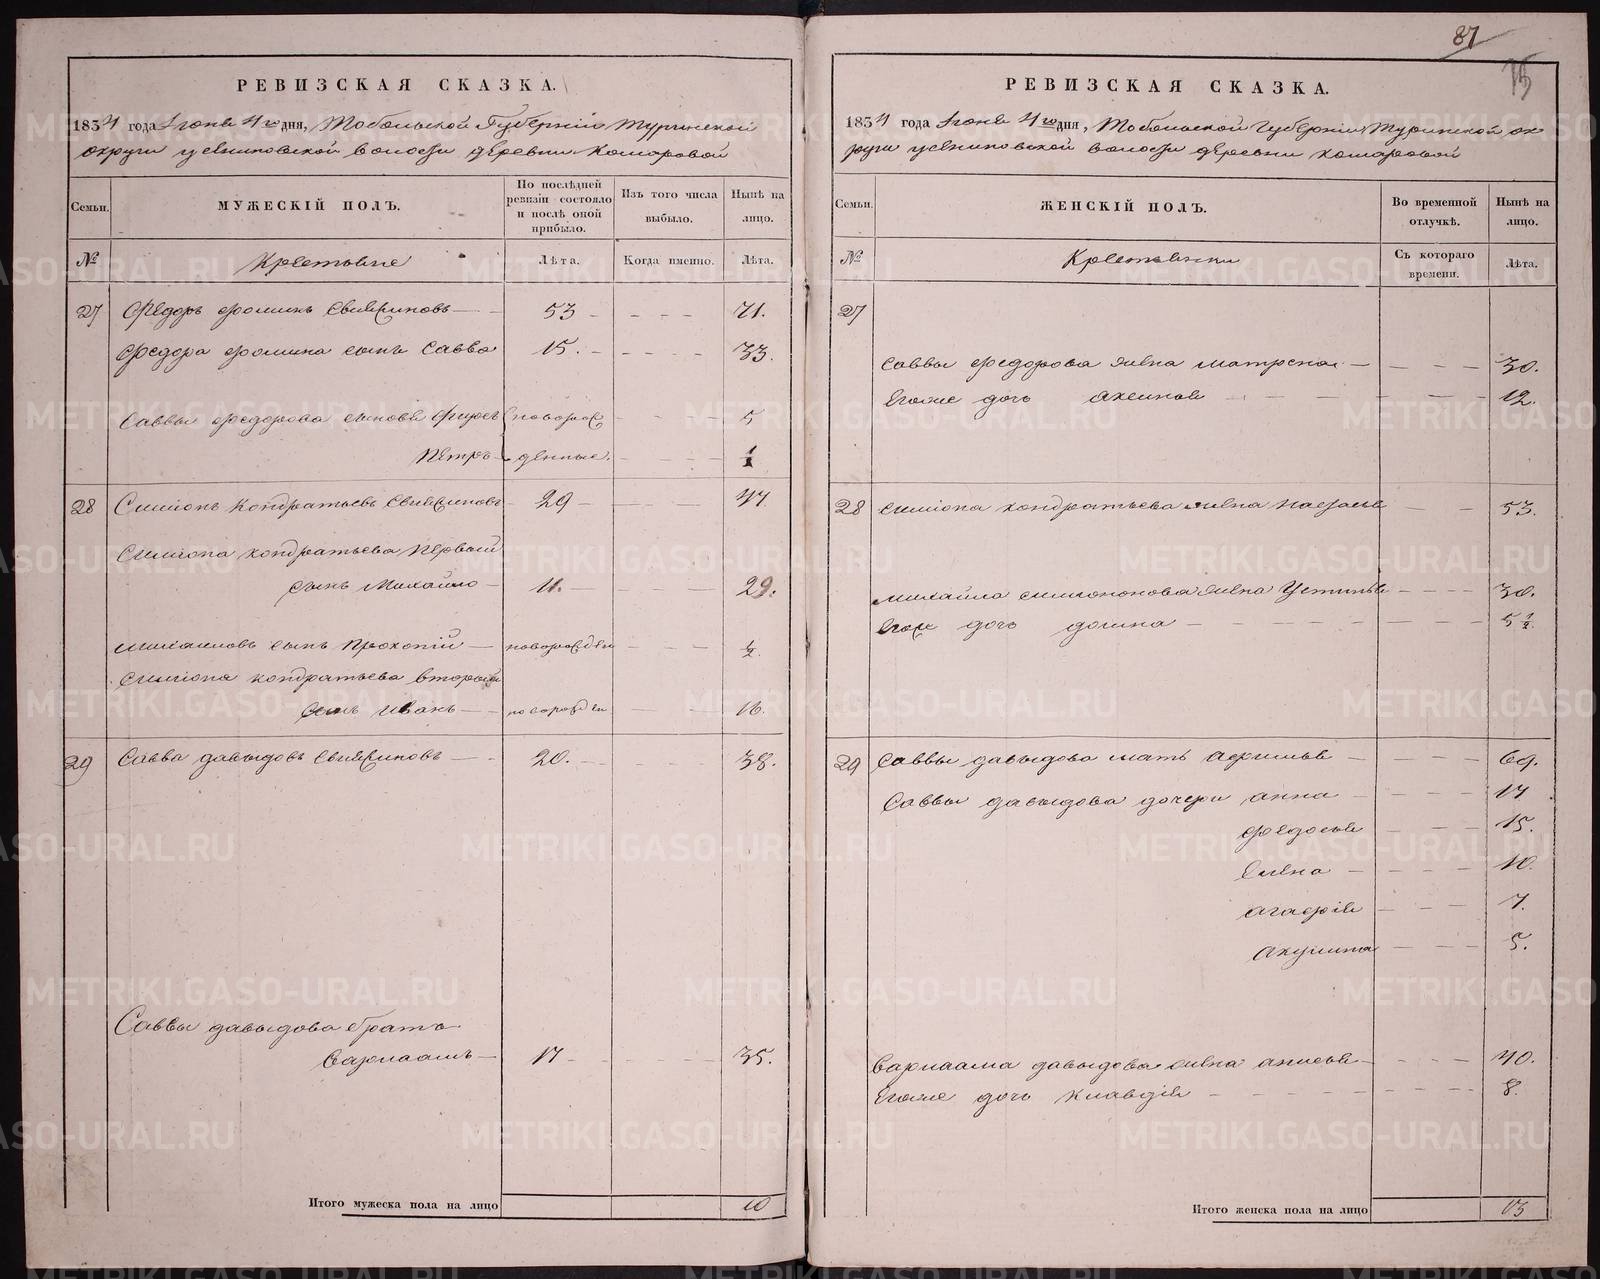 РЕВИЗСКАЯ СКАЗКА.
1834 года Іюня 4го дня, Тобольской Губерніи Туринской
округи Усениновской волости деревни Комаровой
Семьи.
МУЖЕСКІЙ ПОЛЪ.
По послѣдней ревизіи состояло и послѣ оной прибыло.
Изъ того числа выбыло.
Нынѣ на лицо.
№
Крестьяне
Лѣта.
Когда именно.
Лѣта.
27 Федоръ Фоминъ 53 71.
Федора Фомина сынъ Савва 15. 33.
Саввы Федорова сыновья новорож 5
Петръ денные.
28 Симіонъ Кондратьевъ 29 47
Симіона Кондратьева первый
сынъ Михайло 11. 29.
Михаиловъ сынъ Прокопій новорожден ½.
Симіона Кондратьева второй
сынъ Иванъ новорожден 16.
29 Савва Давыдовъ 20. 38.
Саввы Давыдова братъ
Варлаамъ 17 35.
Итого мужеска пола на лицо 10
87
РЕВИЗСКАЯ СКАЗКА.
1834 года Іюня 4го дня, Тобольской Губерніи Туринской ок
руги Усениновской волости деревни Комаровой
Семьи.
ЖЕНСКІЙ ПОЛЪ.
Во временной отлучкѣ.
Нынѣ на лицо.
№
Крестьянки
Съ котораго времени.
Лѣта.
27
Саввы Федорова жена Матрена 30.
Егоже дочь Аксинья 12.
28 Симіона Кондратьева жена Настасья 53.
Михайла Симіонова жена Устинья 30.
Егож дочь Домна 5½
29 Саввы Давыдова мать Афимья 69.
Саввы Давыдова дочери Анна 17
Федосья 15.
Елена 10.
Агафія 7.
Акулина 5.
Варлаама Давыдова жена Анисья 40.
Егоже дочь Клавдія 8.
Итого женска пола на лицо 13
METRIKI.GASO-URAL.RU